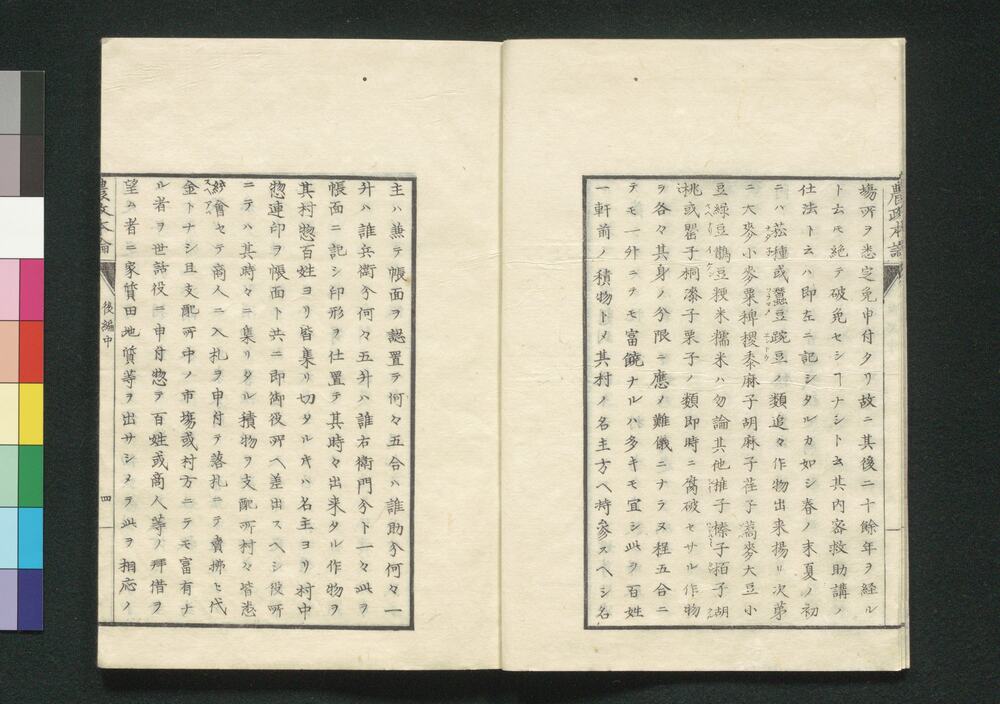 農政本論
場所ヲ悉定免申付タリ故ニ其後二十餘年ヲ経ル
ト云モ絶テ破免セシヿナシト云其内密救助講ノ
仕法ト云ハ即左ニ記シタルカ如シ春ノ末夏ノ初
ニハ菘種或蠶豆豌豆ノ類追々作物出来揚リ次第
ニ大麥小麥粟稗稷黍麻子胡麻子荏子蕎麥大豆小
豆緑豆鵲豆粳米糯米ハ勿論其他榧子榛子栢子胡
桃或罌子桐漆子栗子ノ類即時ニ腐破セサル作物
ヲ各々其身ノ分限ニ應メ難儀ニナラヌ程五合ニ
テモ一升ニテモ富饒ナルハ多キモ宜シ此ヲ百姓
一軒前ノ積物トメ其村ノ名主方ヘ持參スヘシ名
主ハ兼テ帳面ヲ認置テ何々五合ハ誰助分何々一
升ハ誰兵衛分何々五升ハ誰右衛門分ト一々此ヲ
帳面ニ記シ印形ヲ仕置テ其時々出来タル作物ヲ
其村惣百姓ヨリ皆集リ切タルキハ名主ヨリ村中
惣連印ヲ帳面ト共ニ即御役所ヘ差出スヘシ役所
ニテハ其時々ニ集リタル積物ヲ支配所村々皆悉
紗會セテ商人ニ入札ヲ申付テ落札ニテ賣拂ヒ代
金トナシ且支配所中ノ市場或村方ニテモ富有ナ
ル者ヲ世話役ニ申付惣テ百姓或商人等ノ拜借ヲ
望ム者ニ家質田地質等ヲ出サシメテ此ヲ相応ノ
農政本論
後編中
四